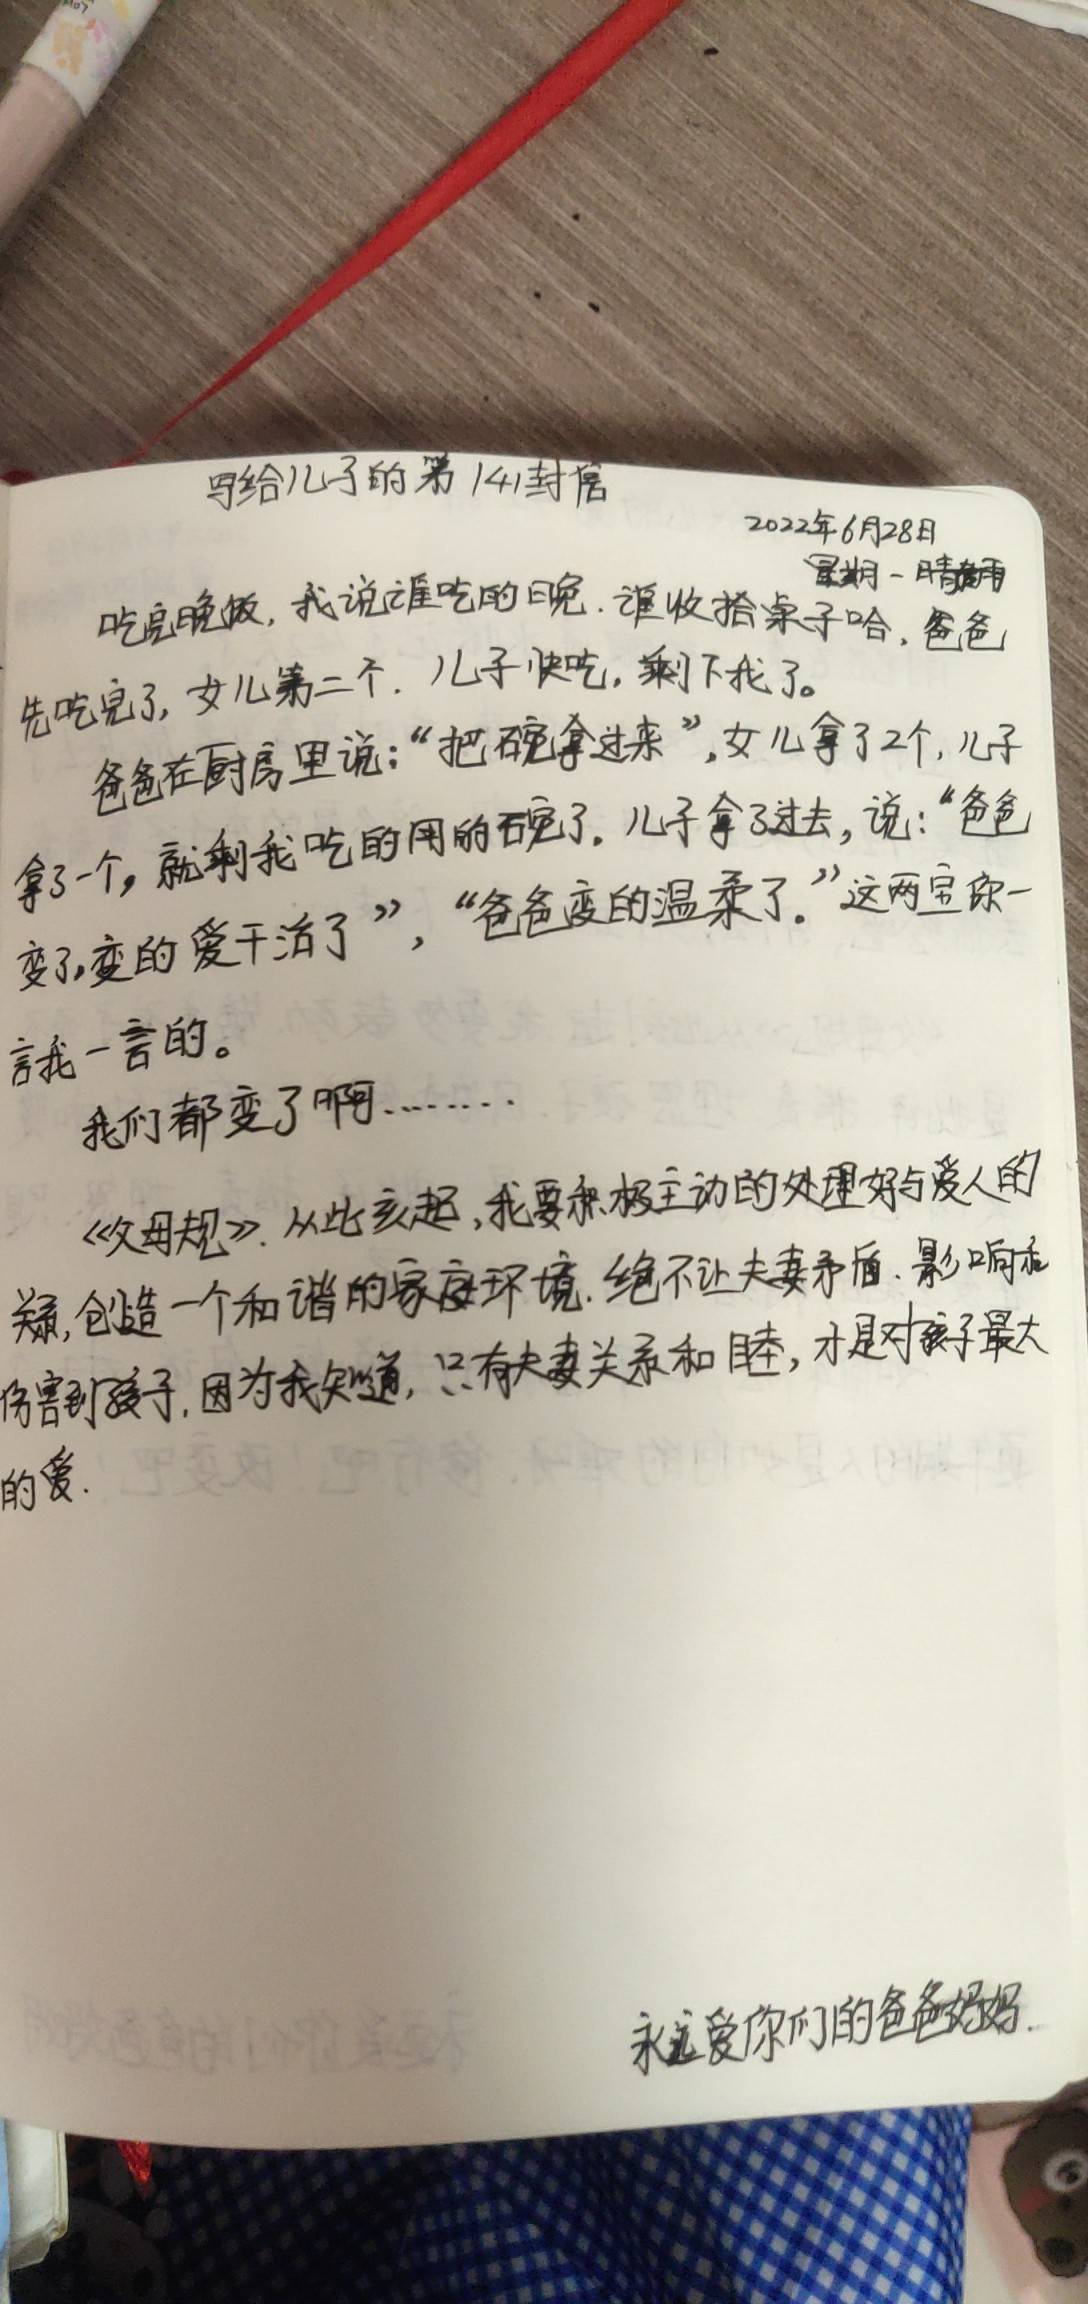 写给儿子的第141封信
2022年6月28日
星期一 晴
吃完晚饭，我说谁吃的晚.谁收拾桌子哈，爸爸
先吃完了，女儿第二个.儿子快吃，剩下我了。
爸爸在厨房里说：“把碗拿过来”，女儿拿了2个，儿子
拿了一个，就剩我吃的用的碗了。儿子拿了过去，说：“爸爸
变了，变的爱干活了”，“爸爸变的温柔了。”这两宝你一
言我一言的。
我们都变了啊………
《父母规》.从此刻起，我要积极主动的处理好与爱人的
关系，创造一个和谐的家庭环境.绝不让夫妻矛盾.影响和
伤害到孩子，因为我知道，只有夫妻关系和睦，才是对孩子最大
的爱.
永远爱你们的爸爸妈妈.